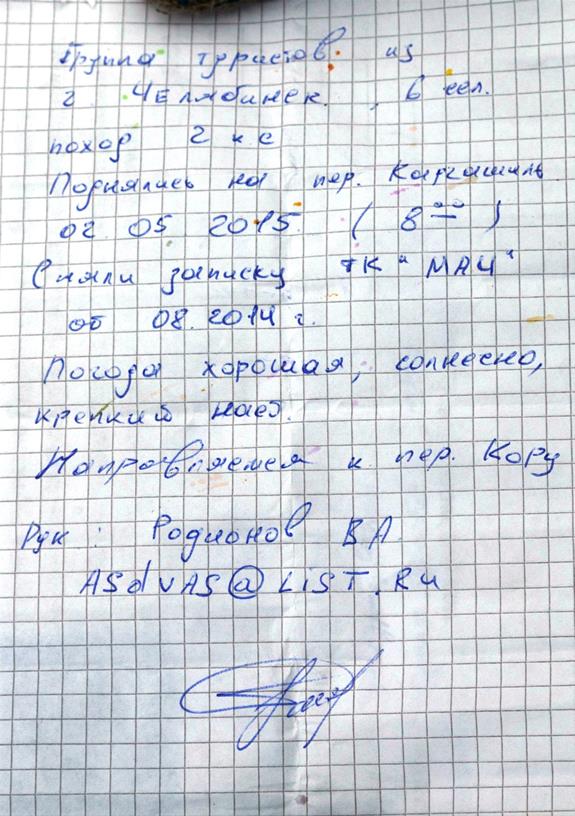 Группа туристов из
г Челябинск, 6 чел.
поход 2 к с
Поднялись на пер. Каракашиль
02 05 2015 (8⁰⁰)
Сняли записку тк "МАЧ"
от 08.2014 г.
Погода хорошая, солнечно,
крепкий наст.
Направляемся к пер. Кору
Рук: Родионов ВА
ASdVAS@LiST.Ru